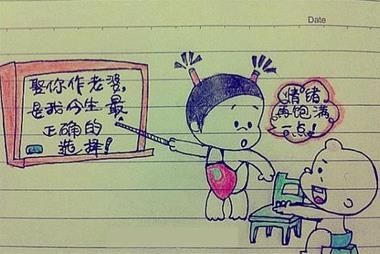 Date
娶你作老婆,
是我今生最
正确的
选择!
情绪
再饱满
一点!